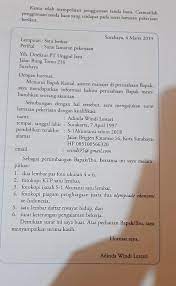 Kamu telah mempelajari penggunaan tanda baca. Cermatilah
penggunaan tanda baca yang terdapat pada surat lamaran pekerjaan
berikut.
Surabaya, 4 Maret 2019
Lampiran : Satu berkas
Perihal : Surat lamaran pekerjaan
Yth. Direktur PT Unggul Jaya
Jalan Bung Tomo 216
Surabaya
Dengan hormat,
Menurut Bapak Kamal, asisten manajer di perusahaan Bapak,
saya mendapatkan informasi bahwa perusahaan Bapak
membutuhkan seorang akuntan.
Sehubungan dengan hal tersebut, saya mengajukan surat
lamaran pekerjaan dengan kualifikasi
nama : Adinda Windi Lestari
tempat, tanggal lahir : Surabaya, 7 April 1997
pendidikan terakhir : S-1 Akuntansi tahun 2018
alamat : Jalan Brigjen Katamso 56, Kota Surabaya
HP
email : @gmail.com
Sebagai pertimbangan Bapak/Ibu, bersama ini saya
1. dua lembar pas foto ukuran 4 × 6,
2. fotokopi KTP satu lembar,
3. fotokopi ijazah S-1 Akuntansi satu lembar,
4. fotokopi piagam penghargaan juara dua olimpiade ekonomi
se-Indonesia,
5. satu lembar daftar riwayat hidup, dan
6. surat keterangan pengalaman bekerja.
Demikian surat ini saya buat. Atas perhatian Bapak/Ibu, saya
menyampaikan terima kasih.
Hormat saya,
Adinda Windi Lestari